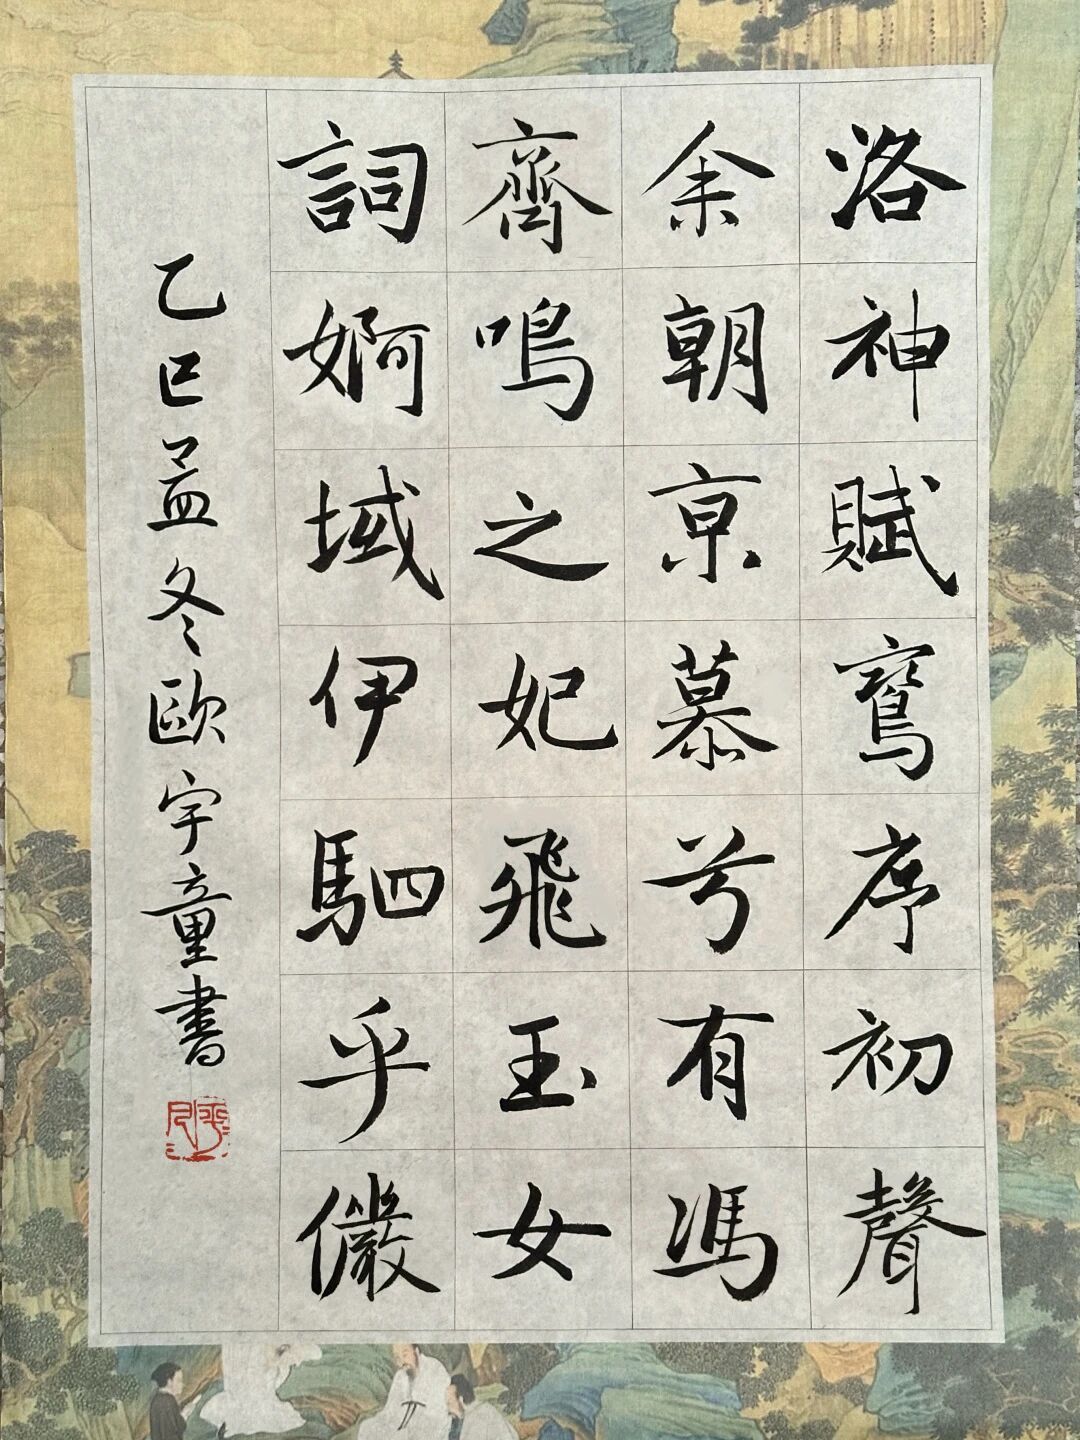 洛神賦窵序初聲
余朝亰慕兮有馮
齊鳴之妃飛玉女
詞婀域伊駟乎儼
乙巳孟冬歐宇童書